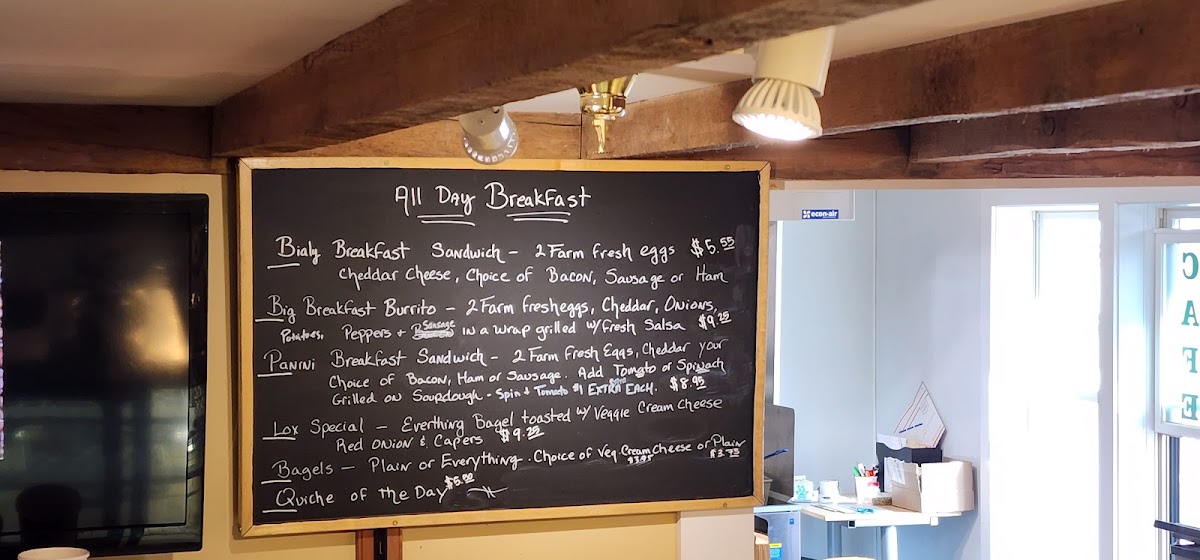 All Day Breakfast
Bialy Breakfast Sandwich - 2 Farm fresh eggs $5.55
Cheddar Cheese, Choice of Bacon, Sausage or Ham
Big Breakfast Burrito - 2 Farm fresh eggs, Cheddar, Onions,
Potatoes, Peppers + Sausage in a wrap grilled w/ fresh Salsa $9.25
Panini Breakfast Sandwich - 2 Farm Fresh Eggs, Cheddar your
Choice of Bacon, Ham or Sausage. Add Tomato or Spinach
Grilled on Sourdough - Spin + Tomato $1 EXTRA EACH. $8.95
Lox Special - Everthing Bagel toasted w/ Veggie Cream Cheese
Red Onion & Capers $9.25
Bagels - Plain or Everything. Choice of Veg. Cream Cheese or Plain
$3.95 $3.75
Quiche of the Day $5.50
econ-air
CAFE